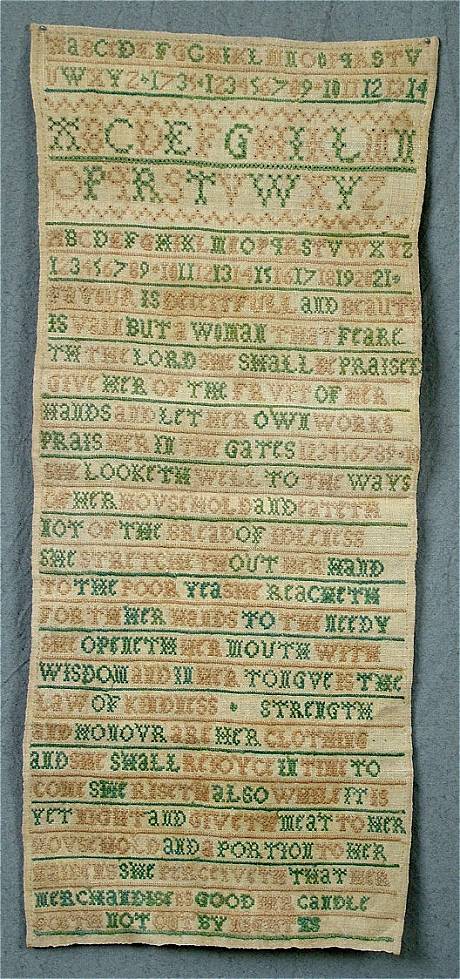 ABCDEFGHIKLMNOPQRSTV
UWXYZ 1 7 3 1 2 3 4 5 6 7 8 9 10 11 12 13 14
ABCDEFGHIKLMN
OPQRSTVWXYZ
ABCDEFGHIKLMNOPQRSTVWXYZ
1 2 3 4 5 6 7 8 9 10 11 12 13 14 15 16 17 18 19 20 21
FAVOUR IS DECEITFULL AND BEAUTY
IS VAIN BUT A WOMAN THAT FEARE
TH THE LORD SHE SHALL BE PRAISED
GIVE HER OF THE FRVET OF HER
HANDS AND LET HER OWN WORKS
PRAIS HER IN THE GATES 1 2 3 4 5 6 7 8 9 10
SHE LOOKETH WELL TO THE WAYS
OF HER HOVSEHOLD AND EATETH
NOT OF THE BREAD OF IDLENESS
SHE STRETCHETH OUT HER HAND
TO THE POOR YEA SHE REACHETH
FORTH HER HANDS TO THE NEEDY
SHE OPENETH HER MOUTH WITH
WISDOM AND IN HER TONGVE IS THE
LAW OF KINDNESS STRENGTH
AND HONOVR ARE HER CLOTHING
AND SHE SHALL REJOYCE IN TIME TO
COME SHE RISETH ALSO WHILE IT IS
YET NIGHT AND GIVETH MEAT TO HER
HOVSEHOLD AND A PORTION TO HER
MAIDENS SHE PERCEIVETH THAT HER
MERCHANDISE IS GOOD HER CANDLE
GOETH NOT OUT BY NIGHT ES